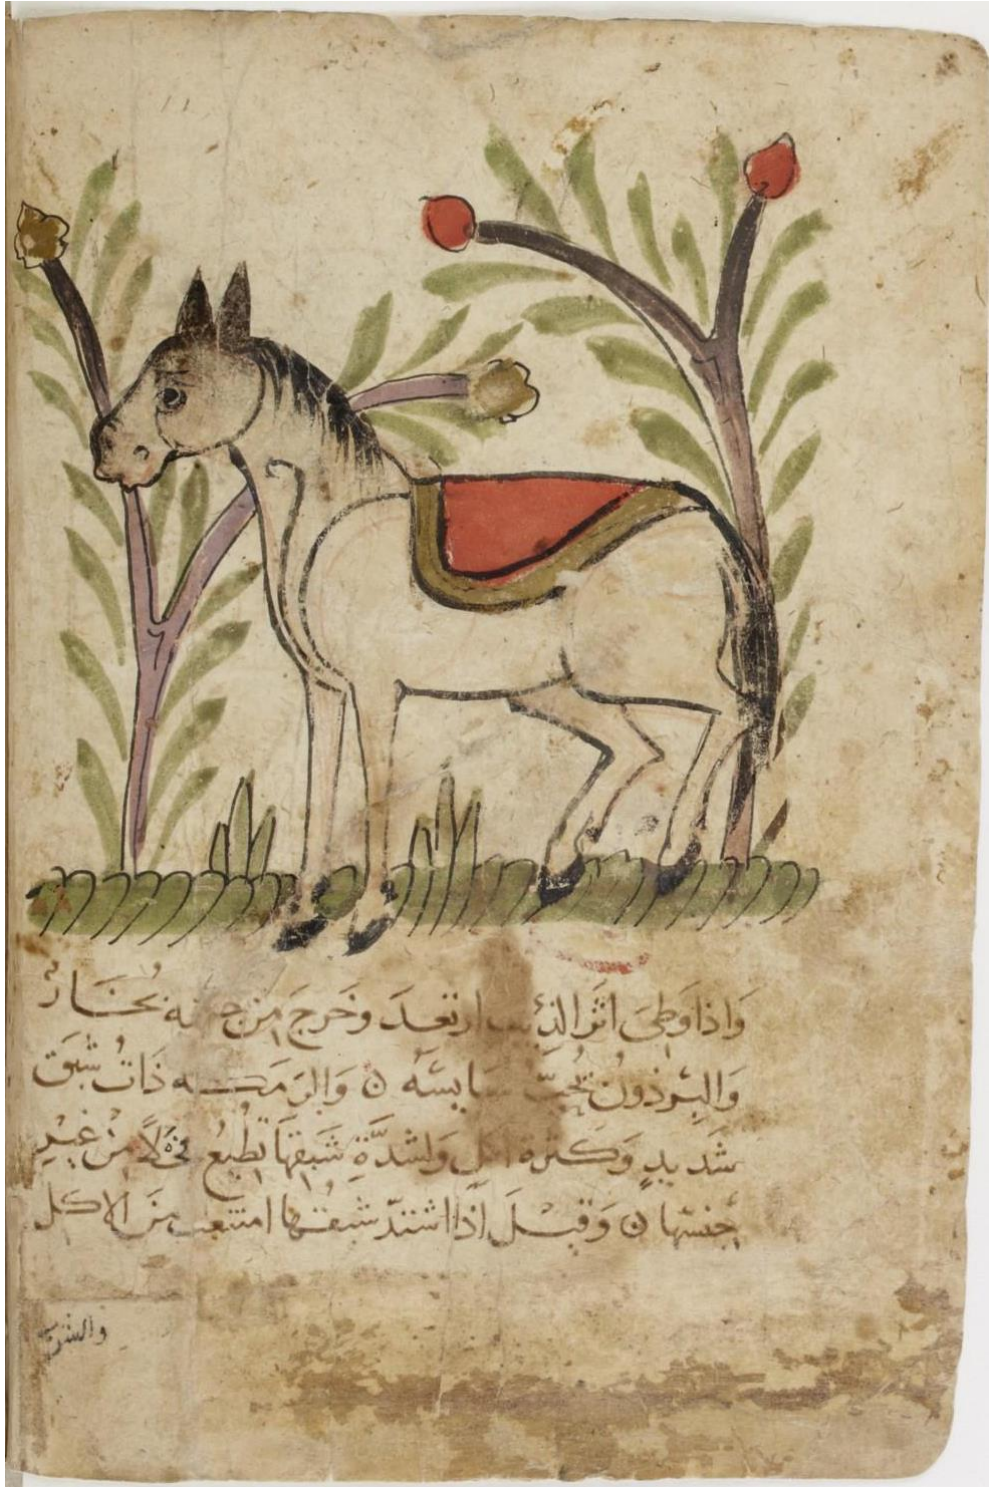 وَاذا وَطِىَ اثَرَ الذئب ارتعدَ وخَرجَ مِن بُخَارٌ
وَالبِرذونُ يُحبّ سَايسَهُ ن وَالرَمَكه ذَاتُ شَبَق
شديدٍ وَكَثرة وَلشدَّةِ شَبَقهَا تُطيعُ فحلًا مِنْ غيرِ
جنسهَا ن وَقيْلَ اذَا اشتدّ شبقُها امتنعت منَ الاكل
والشرب